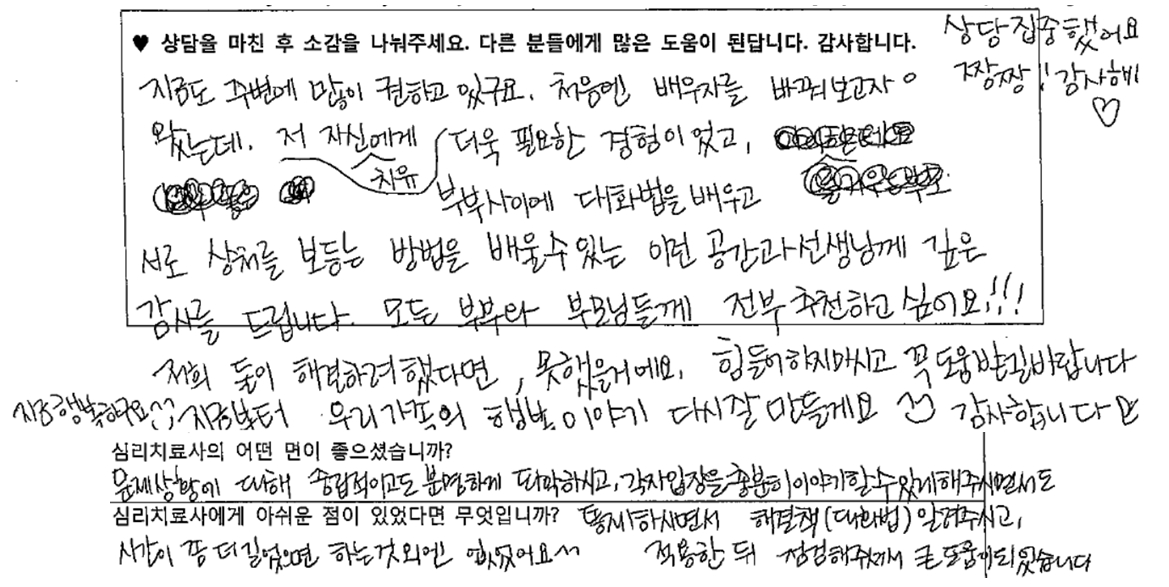 ♥ 상담을 마친 후 소감을 나눠주세요. 다른 분들에게 많은 도움이 된답니다. 감사합니다.
상당집중했어요
짱짱! 감사해
♡
지금도 주변에 많이 권하고 있구요. 처음엔 배우자를 바꿔보고자
왔는데. 저 자신에게 치유 더욱 필요한 경험이었고,
부부사이에 대화법을 배우고
서로 상처를 보듬는 방법을 배울수있는 이런 공간과 선생님께 깊은
감사를 드립니다. 모든 부부와 부모님들께 전부 추천하고 싶어요!!!
저희 둘이 해결하려 했다면, 못했을거에요. 힘들어하지마시고 꼭 도움받길바랍니다
지금행복하구요^^; 지금부터 우리가족의 행복이야기 다시잘만들게요 감사합니다
심리치료사의 어떤 면이 좋으셨습니까?
문제상황에 대해 중립적이고도 분명하게 파악하시고, 각자입장을충분히이야기할수있게해주시면서도
심리치료사에게 아쉬운 점이 있었다면 무엇입니까? 통제하시면서 해결책(대화법) 알려주시고,
시간이 쫌 더 길었으면 하는것 외엔 없었어요~ 적용한 뒤 점검해주셔서 큰도움이되었습니다